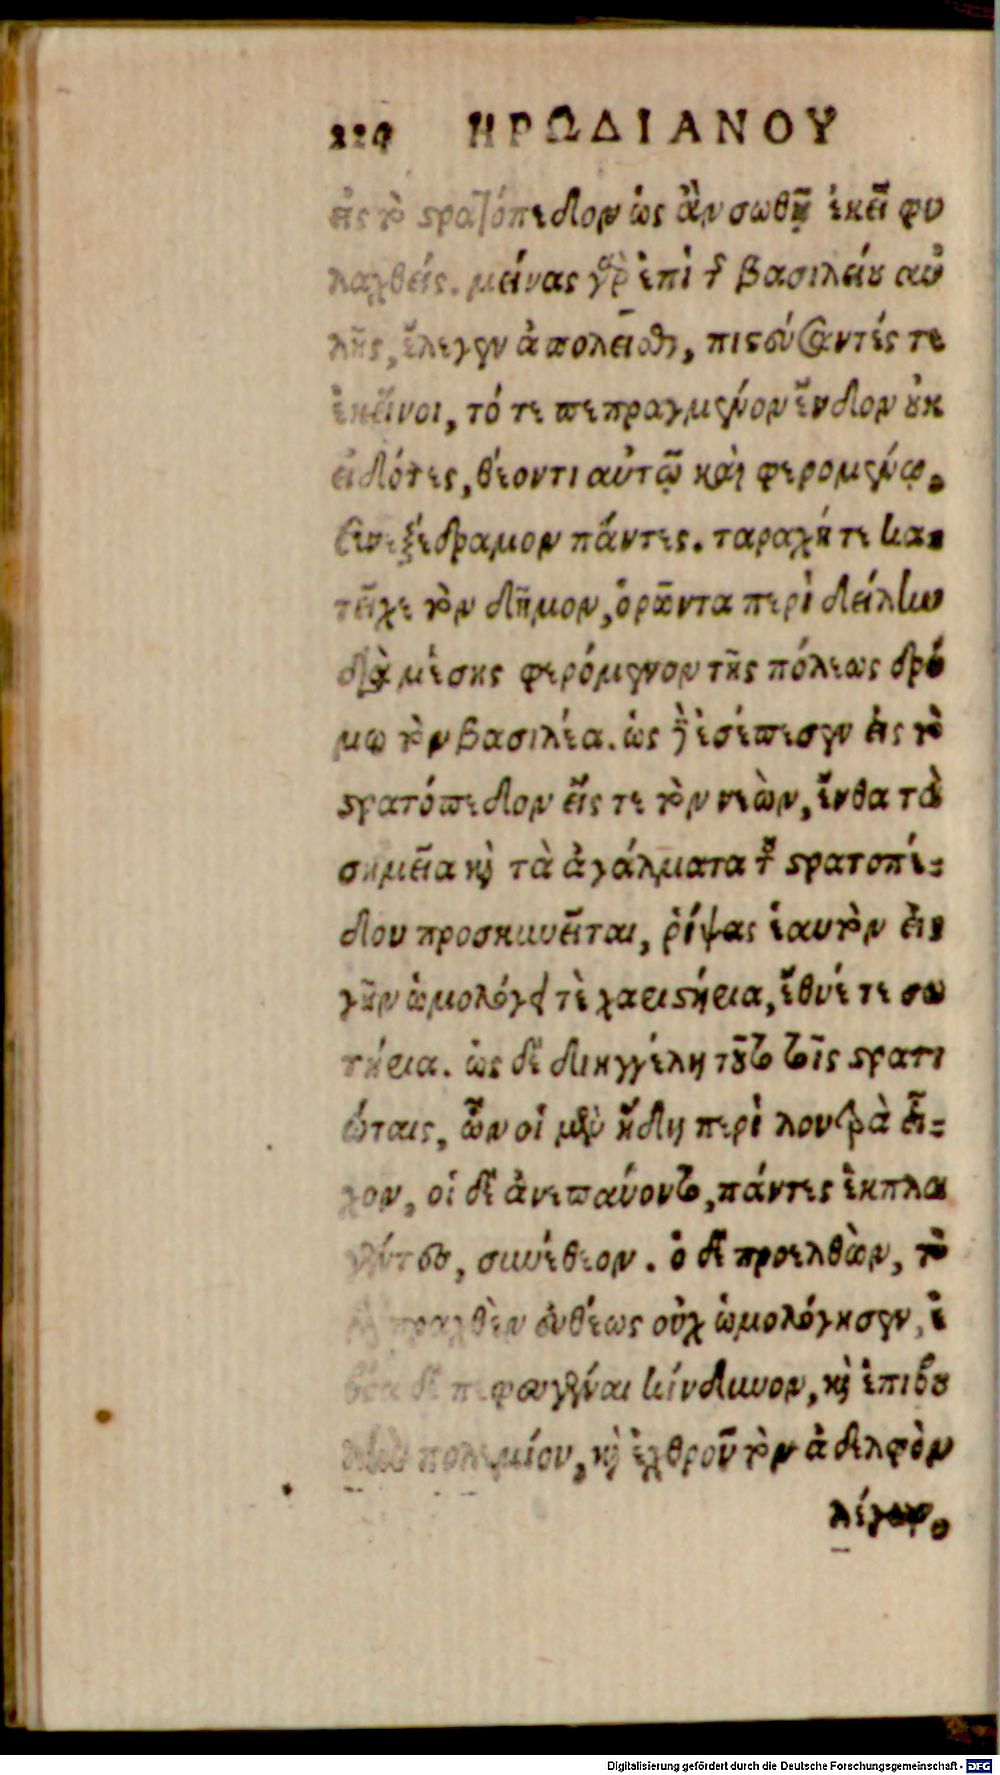 220 ΗΡΩΔΙΑΝΟΥ
εἰς τὸ στρατόπεδον ὡς ἂν σωθῇ ἐκεῖ φυ
λαχθείς. μείνας γὰρ ἐπὶ τῆς βασιλείου αὐ
λῆς, ἔλεγεν ἀπολεῖσθαι, πιστεύσαντές τε
ἐκεῖνοι, τό τε πεπραγμένον ἔνδον οὐκ
εἰδότες, θέοντι αὐτῷ καὶ φερομένῳ
συνεξέδραμον πάντες. ταραχή τε κα-
τεῖχε τὸν δῆμον, ὁρῶντα περὶ δείλην
διὰ μέσης φερόμενον τῆς πόλεως δρό
μῳ τὸν βασιλέα. ὡς δὲ ἐσέπεσεν εἰς τὸ
στρατόπεδον εἴς τε τὸν νεὼν, ἔνθα τὰ
σημεῖα καὶ τὰ ἀγάλματα τοῦ στρατοπέ-
δου προσκυνεῖται, ῥίψας ἑαυτὸν εἰς
γῆν ὡμολόγει τὲ χαριστήρια, ἔθυέ τε σω
τήρια. ὡς δὲ διηγγέλη τοῦτο τοῖς στρατι
ώταις, ὧν οἱ μὲν ἤδη περὶ λουτρὰ εἶ-
χον, οἱ δὲ ἀνεπαύοντο, πάντες ἐκπλα
γέντες, συνέθεον. ὁ δὲ προελθὼν, τὸ
μὲν πραχθὲν εὐθέως οὐχ ὡμολόγησεν, ἐ
βόα δὲ πεφευγέναι κίνδυνον, καὶ ἐπιβου
λὴν πολεμίου, καὶ ἐχθροῦ τὸν ἀδελφὸν
λέγων.
Digitalisierung gefördert durch die Deutsche Forschungsgemeinschaft - DFG